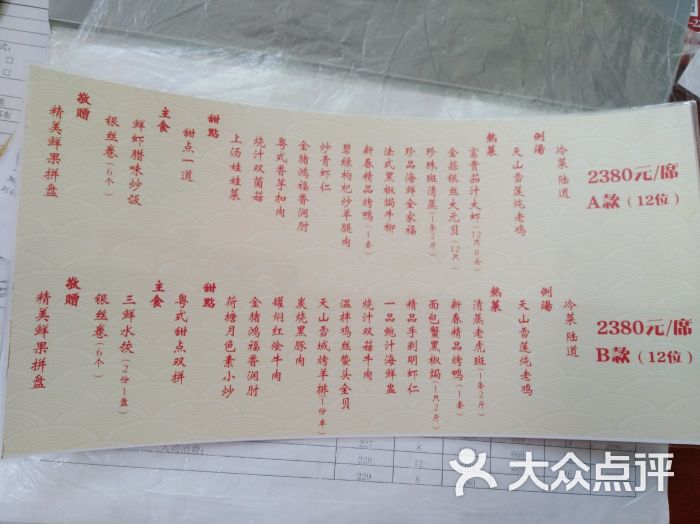 2380元/席
A款（12位）
冷菜陆道
例湯
天山雪莲炖老鸡
熱菜
富贵茄汁大虾（12只/6条）
金蒜银丝大元贝（12只）
珍珠斑清蒸（1条2斤）
珍品海鲜全家福
法式黑椒焗牛柳
新春精品烤鸭（1套）
碧绿枸杞炒羊腿肉
炒青虾仁
金猪鸿福香润肘
粤式香羊扣肉
烧汁双菌菇
上汤娃娃菜
甜點
甜点一道
主食
鲜虾腊味炒饭
银丝卷（6个）
敬赠
精美鲜果拼盘
2380元/席
B款（12位）
冷菜陆道
例湯
天山雪莲炖老鸡
熱菜
清蒸老虎斑（1条2斤）
新春精品烤鸭（1套）
面包蟹黑椒焗（1只2斤）
精品手剥明虾仁
一品鲍汁海鲜盅
烧汁双菇牛肉
温拌鸡丝蜇头全贝
天山雪域烤羊排（1份半）
炭烧黑豚肉
罐焖红烩牛肉
金猪鸿福香润肘
荷塘月色素小炒
甜點
粤式甜点双拼
主食
三鲜水饺（2份1盘）
银丝卷（6个）
敬赠
精美鲜果拼盘
227 8
228 12
229 8
大众点评